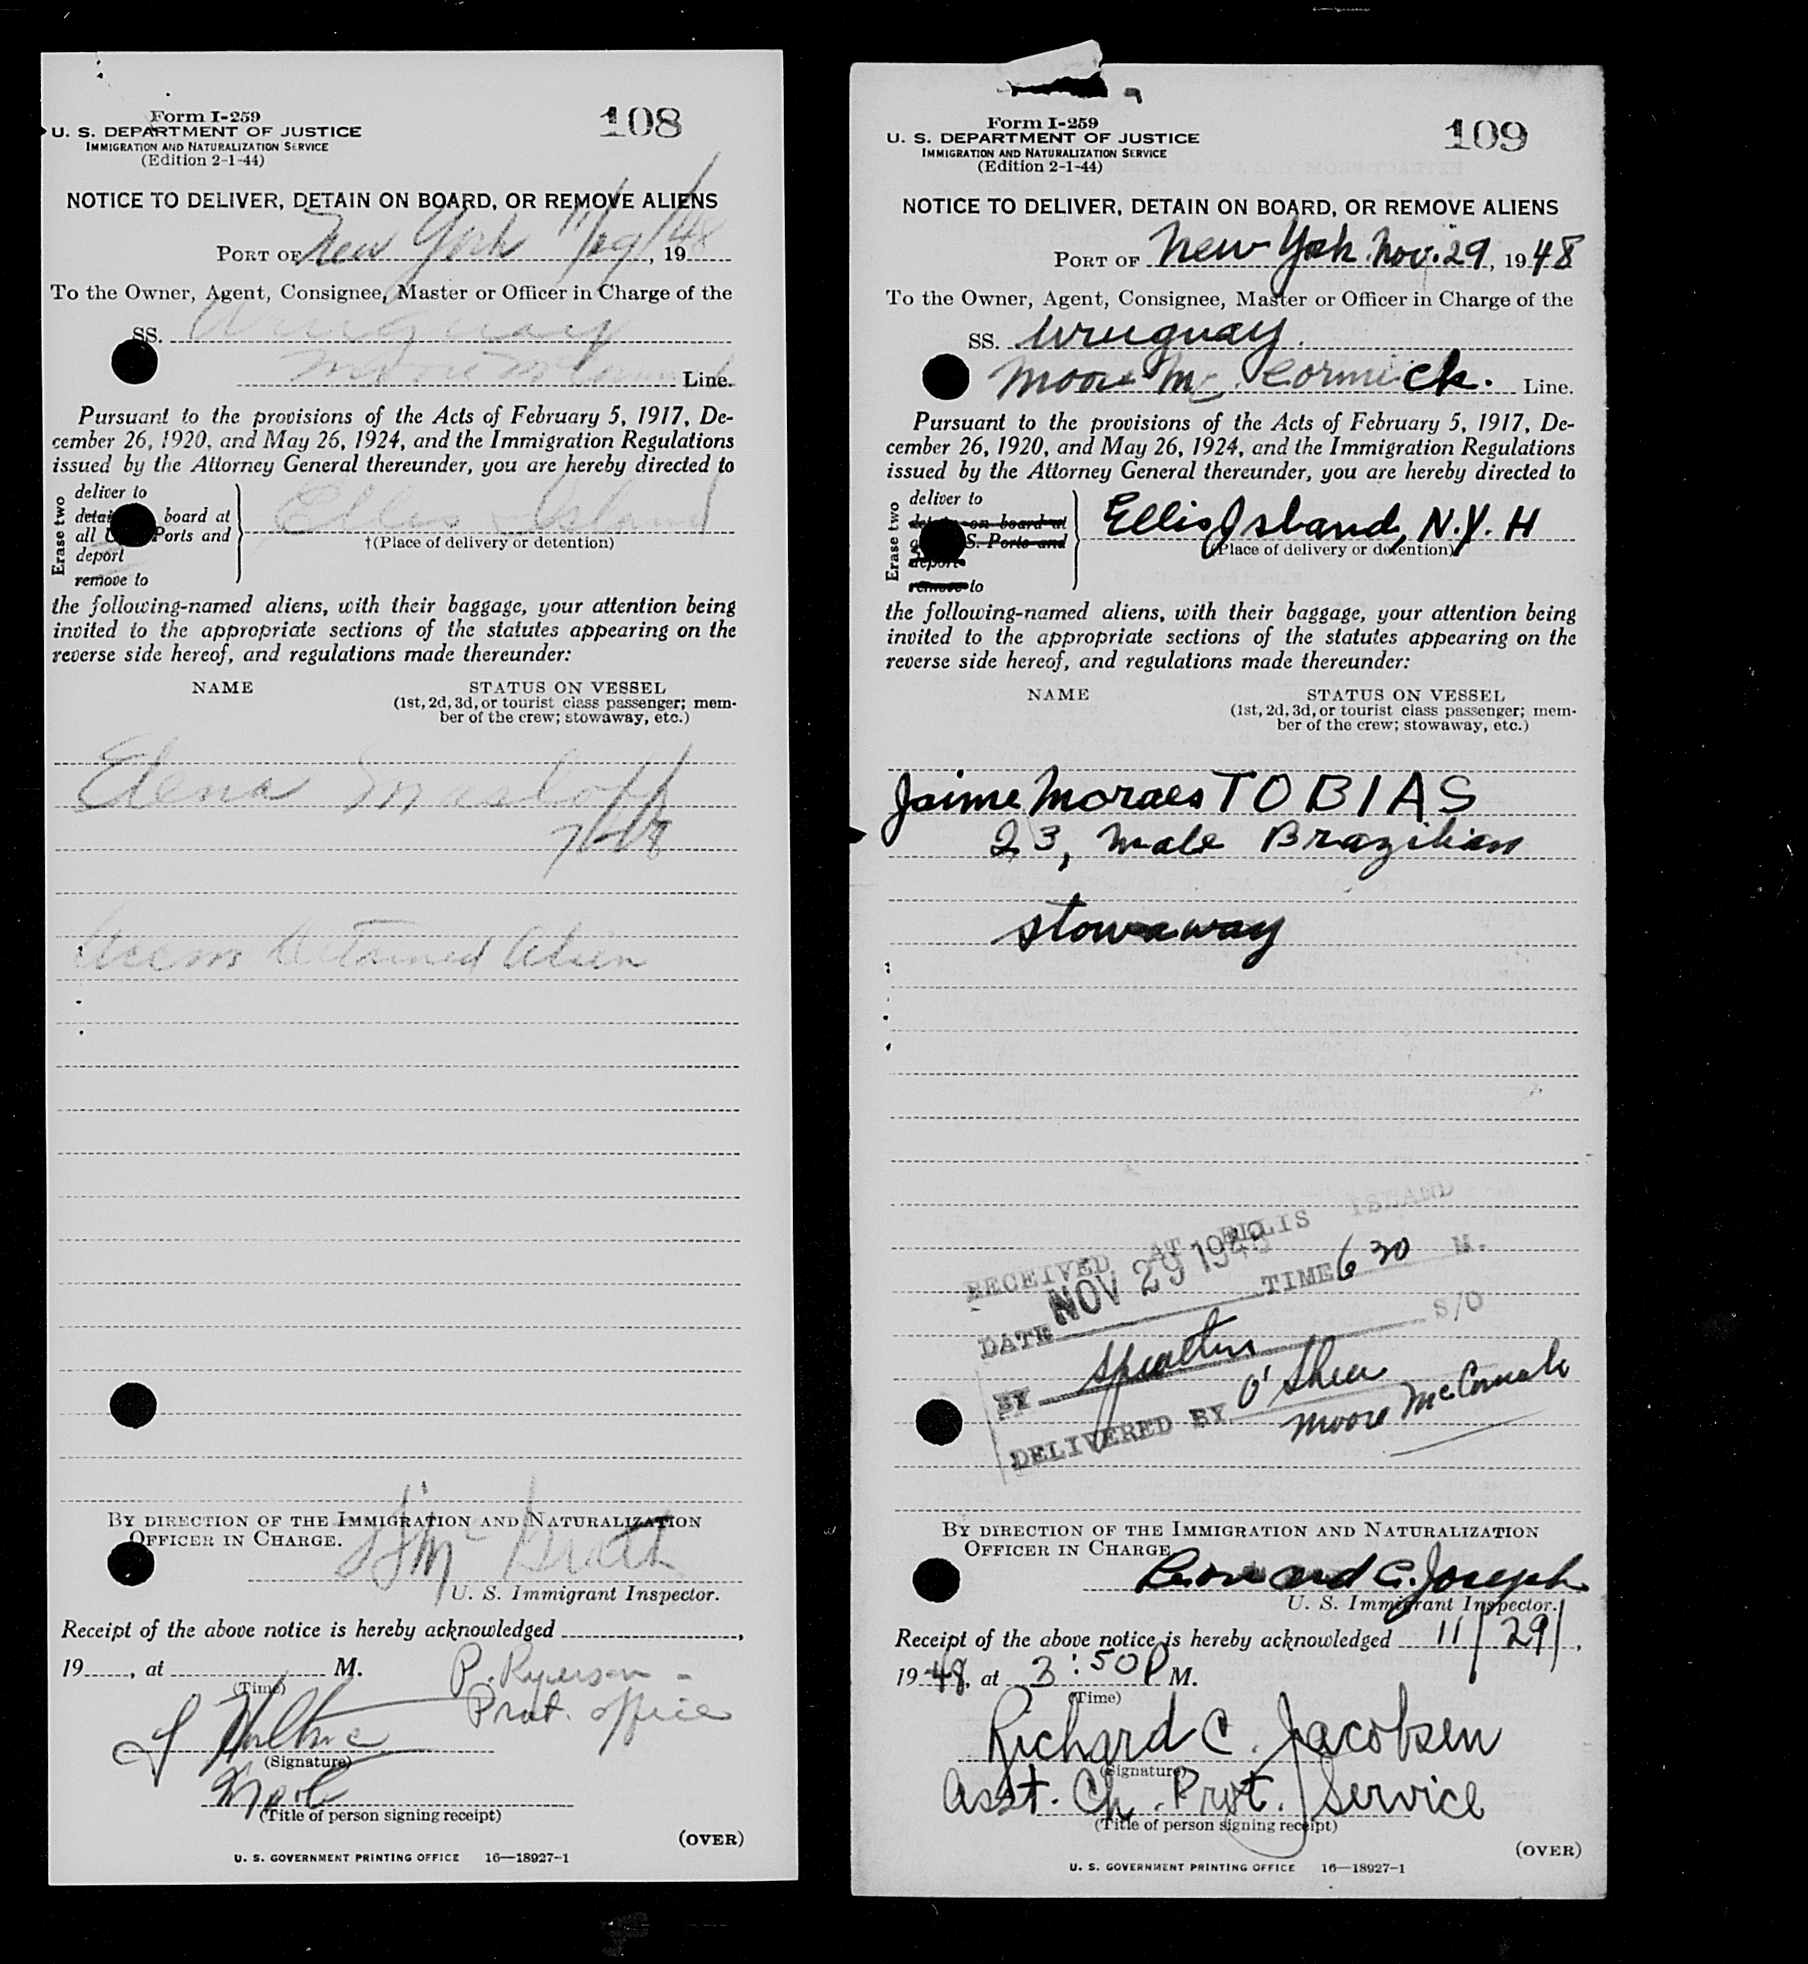 Form I-259
U. S. DEPARTMENT OF JUSTICE
IMMIGRATION AND NATURALIZATION SERVICE
(Edition 2-1-44)
108
NOTICE TO DELIVER, DETAIN ON BOARD, OR REMOVE ALIENS
PORT OF New York 11/29/48, 19
To the Owner, Agent, Consignee, Master or Officer in Charge of the
SS. Uruguay
Moore McCormack Line.
Pursuant to the provisions of the Acts of February 5, 1917, De-
cember 26, 1920, and May 26, 1924, and the Immigration Regulations
issued by the Attorney General thereunder, you are hereby directed to
Erase two
deliver to
board at
all Ports and
deport
remove to
Ellis Island
†(Place of delivery or detention)
the following-named aliens, with their baggage, your attention being
invited to the appropriate sections of the statutes appearing on the
reverse side hereof, and regulations made thereunder:
NAME
STATUS ON VESSEL
(1st, 2d, 3d, or tourist class passenger; mem-
ber of the crew; stowaway, etc.)
Elena Masloff
Detained Alien
BY DIRECTION OF THE IMMIGRATION AND NATURALIZATION
OFFICER IN CHARGE.
U. S. Immigrant Inspector.
Receipt of the above notice is hereby acknowledged
19, at M.
(Time)
P. Ryerson -
Prot. office
(Signature)
(Title of person signing receipt)
(OVER)
U. S. GOVERNMENT PRINTING OFFICE 16—18927-1
Form I-259
U. S. DEPARTMENT OF JUSTICE
IMMIGRATION AND NATURALIZATION SERVICE
(Edition 2-1-44)
109
NOTICE TO DELIVER, DETAIN ON BOARD, OR REMOVE ALIENS
PORT OF New York. Nov. 29, 1948
To the Owner, Agent, Consignee, Master or Officer in Charge of the
SS. Uruguay.
Moore Mc Cormick. Line.
Pursuant to the provisions of the Acts of February 5, 1917, De-
cember 26, 1920, and May 26, 1924, and the Immigration Regulations
issued by the Attorney General thereunder, you are hereby directed to
Erase two
deliver to
detain on board at
S. Ports and
deport
remove to
Ellis Island, N.Y. H
(Place of delivery or detention)
the following-named aliens, with their baggage, your attention being
invited to the appropriate sections of the statutes appearing on the
reverse side hereof, and regulations made thereunder:
NAME
STATUS ON VESSEL
(1st, 2d, 3d, or tourist class passenger; mem-
ber of the crew; stowaway, etc.)
Jaime Moraes TOBIAS
23, male Brazilian
stowaway
RECEIVED AT ELLIS ISLAND
DATE NOV 29 1948 TIME 6 30 M.
BY S/O
DELIVERED BY O'Shea
Moore
BY DIRECTION OF THE IMMIGRATION AND NATURALIZATION
OFFICER IN CHARGE
G. Joseph
U. S. Immigrant Inspector.
Receipt of the above notice is hereby acknowledged 11/29/,
1948, at 3:50 P M.
(Time)
Richard C. Jacobsen
(Signature)
Asst. Ch. Prot. Service
(Title of person signing receipt)
(OVER)
U. S. GOVERNMENT PRINTING OFFICE 16—18927-1